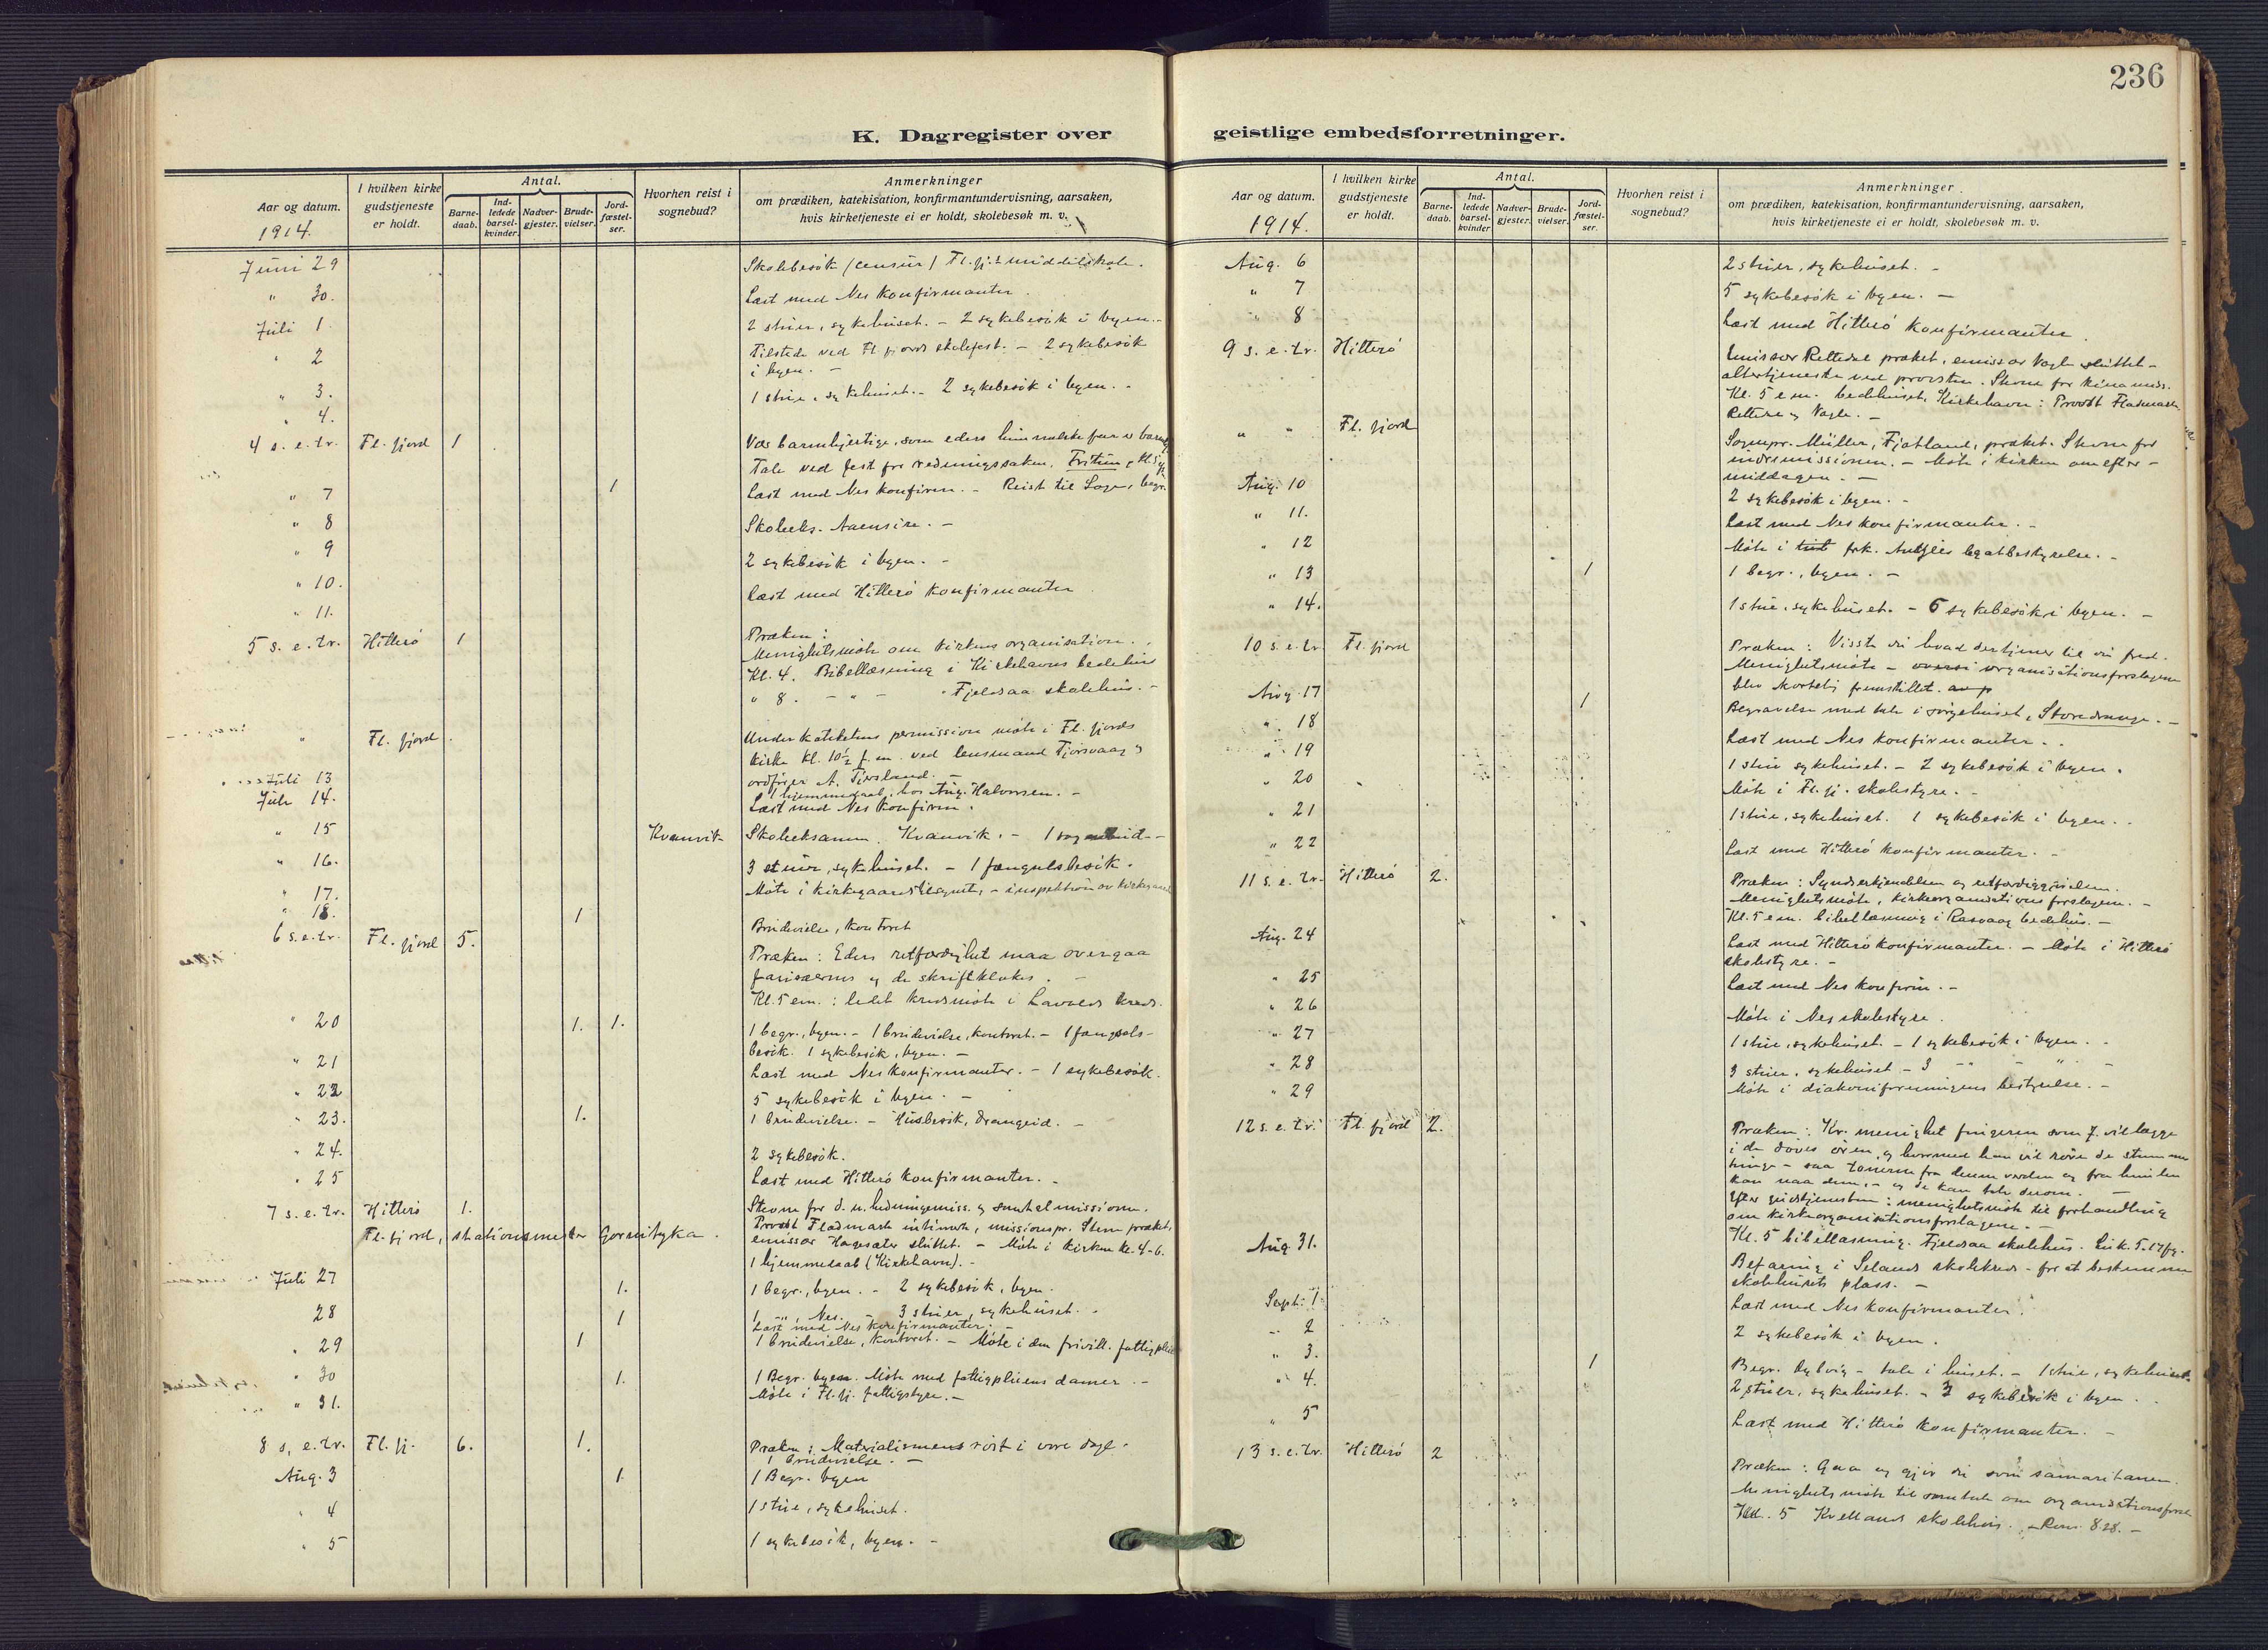 236
K. Dagregister over
geistlige embedsforretninger.
Aar og datum.
1914.
I hvilken kirke gudstjeneste er holdt.
Antal.
Barne-daab.
Ind-ledede barsel-kvinder.
Nadver-gjester.
Brude-vielser.
Jord-fæstel-ser.
Hvorhen reist i sognebud?
Anmerkninger
om prædiken, katekisation, konfirmantundervisning, aarsaken,
hvis kirketjeneste ei er holdt, skolebesøk m. v.
Juni 29 Skolebesök (censur) Fl.fj.s middelskole.
" 30. Læst med Nes konfirmanter.
Juli 1. 2 stuer, sykehuset. - 2 sykebesök i byen. -
" 2 Tilstede ved Fl.fjords skolefest. - 2 sykebesök
i byen. -
" 3. 1 stue, sykehuset. - 2 sykebesök i byen. -
" 4.
4 s. e. tr. Fl. fjord 1 Vær barmhjertige, som eders himmelske far er
Tale ved fest for redningssaken,
" 7 1 Læst med Nes konfirm. - Reist til
" 8 Skoleeks. Aaensire. -
" 9 2 sykebesök i byen. -
" 10. Læst med Hitterö konfirmanter
" 11.
5 s. e. tr. Hitterö 1 Præken:
Menighetsmöte om kirkens organisation.
Kl. 4. Bibellæsning i Kirkehavns bedehus
" 8. - " - " Fjeldsaa skolehus. -
" Fl. fjord. Under katekhetens permission möte i Fl. fjords
kirke kl. 10½ f.m. ved lensmand Tjorsvaag og
ordförer A. Tjörsland. -
Juli 13 1 hjemmedaab, hos Aug. Halvorsen. -
Juli 14. Læst med Nes konfirm.
" 15 Kvanvik Skoleeksamen. Kvanvik. - 1 sognebud -
" 16. 3 stuer, sykehuset. - 1 fængselsbesök.
" 17. Möte i kirkegaardstilsynet, - inspektion av
" 18. 1 Brudevielse, kontoret
6 s. e. tr. Fl. fjord 5. Præken: Eders retfærdighet maa overgaa
farisæernes og de skriftklokes. -
Kl. 5 em.: ledet kredsmöte i kreds.
" 20 1. 1. 1 begr., byen. - 1 brudevielse, kontoret. - 1 fængsels-
besök. 1 sykebesök, byen. -
" 21 Læst med Nes konfirmanter. - 1 sykebesök.
" 22 5 sykebesök i byen. -
" 23. 1. 1 brudevielse. - Husbesök, Drangeid. -
" 24. 2 sykebesök.
" 25 Læst med Hitterö konfirmanter. -
7 s. e. tr. Hitterö 1. Stevne for d. n. hedningemiss. og santalmissionen.
Fl. fjord, stationsmester Gornitzka. Provst Fladmark intimerte, missionspr. præket,
emissær Hagesæter sluttet. - Möte i kirken kl. 4-6.
1 hjemmedaab (Kirkehavn). -
Juli 27 1. 1 begr., byen. - 2 sykebesök, byen.
28 1 1 -"-, Nes. - 3 stuer, sykehuset. -
Læst med Nes konfirmanter. -
" 29 1 1 brudevielse, kontoret. - Möte i den frivill. fattigpleie
" 30 1. 1 Begr. byen. Möte med fattigpleiens damer. -
" 31. Möte i Fl. fj. fattigstyre. -
8 s. e. tr. Fl. fj. 6. 1. Præken: Materialismens röst i vore dage.
1 brudevielse. -
Aug. 3 1 1 Begr. byen
" 4 1 stue, sykehuset.
" 5 1 sykebesök, byen. -
Aar og datum.
1914.
I hvilken kirke gudstjeneste er holdt.
Antal.
Barne-daab.
Ind-ledede barsel-kvinder
Nadver-gjester.
Brude-vielser.
Jord-fæstel-ser.
Hvorhen reist i sognebud?
Anmerkninger
om prædiken, katekisation, konfirmantundervisning, aarsaken,
hvis kirketjeneste ei er holdt, skolebesøk m. v.
Aug. 6 2 stuer, sykehuset. -
" 7 5 sykebesök i byen. -
" 8 Læst med Hitterö konfirmanter.
9 s. e. tr. Hitterö Emissær Rettedal præket, emissær Nagle sluttet -
altertjeneste ved provsten. Stevne for kinamiss.
Kl. 5 em. bedehuset, Kirkehavn: Provst Fladmark
og Nagle. -
" " Fl. fjord Sognepr. Müller, Fjotland, præket. Stevne for
indremissionen. - Möte i kirken om efter-
middagen. -
Aug. 10 2 sykebesök i byen. -
" 11. Læst med Nes konfirmanter. -
" 12 Möte i frk. legatbestyrelse. -
" 13 1 1 begr., byen. -
" 14. 1 stue, sykehuset. - 6 sykebesök i byen. -
10 s. e. tr. Fl. fjord Præken: Visste du hvad der tjener til din fred.
Menighetsmöte - organisationsforslagene
blev kortelig fremstillet.
Aug. 17 1 Begravelse med tale i sörgehuset, Storedrange. -
" 18 Læst med Nes konfirmanter. -
" 19 1 stue sykehuset. - 2 sykebesök i byen.
" 20 Möte i Fl. fj. skolestyre. -
" 21 1 stue, sykehuset. 1 sykebesök i byen. -
" 22 Læst med Hitterö konfirmanter. -
11 s. e. tr. Hitterö 2. Præken: Synderkjendelsen og retfærdiggjörelsen.
Menighetsmöte, kirkeorganisationsforslagene. -
Kl. 5 em. bibellæsning i Rasvaag bedehus. -
Aug. 24 Læst med Hitterö konfirmanter. - Möte i Hitterö
skolestyre. -
" 25 Læst med Nes konfirm. -
" 26 Möte i Nes skolestyre.
" 27 1 stue, sykehuset. - 1 sykebesök i byen. -
" 28 3 stuer, sykehuset - 3 -"- - " -
" 29 Möte i diakoniforeningens bestyrelse. -
12 s. e. tr. Fl. fjord 2. Præken: Kr. menighet fingeren som J. vil lægge
i de döves ören, og hvormed han vil röre de stummes
tunge - saa tonerne fra denne verden og fra himlen
kan naa dem, - og de kan tale derom. -
Efter gudstjenesten: menighetsmöte til forhandling
om kirkeorganisationsforslagene. -
Kl. 5 bibellæsning. Fjeldsaa skolehus. Luk. 5.17 fg.
Aug. 31. Befaring i Selands skolekreds - for at bestemme
skolehusets plass. -
Sept. 1 Læst med Nes konfirmanter.
" 2 2 sykebesök i byen.
" 3. 1 Begr. - tale i huset. - 1 stue, sykehuset.
" 4. 2 stuer, sykehuset. - 3 sykebesök i byen. -
" 5 Læst med Hitterö konfirmanter. -
13 s. e. tr. Hitterö 2 Præken: Gaa og gjör du som samaritanen.
Menighetsmöte til samtale om organisationsforsl.
Kl. 5 Kvellands skolehus. - Rom. 8.28. -